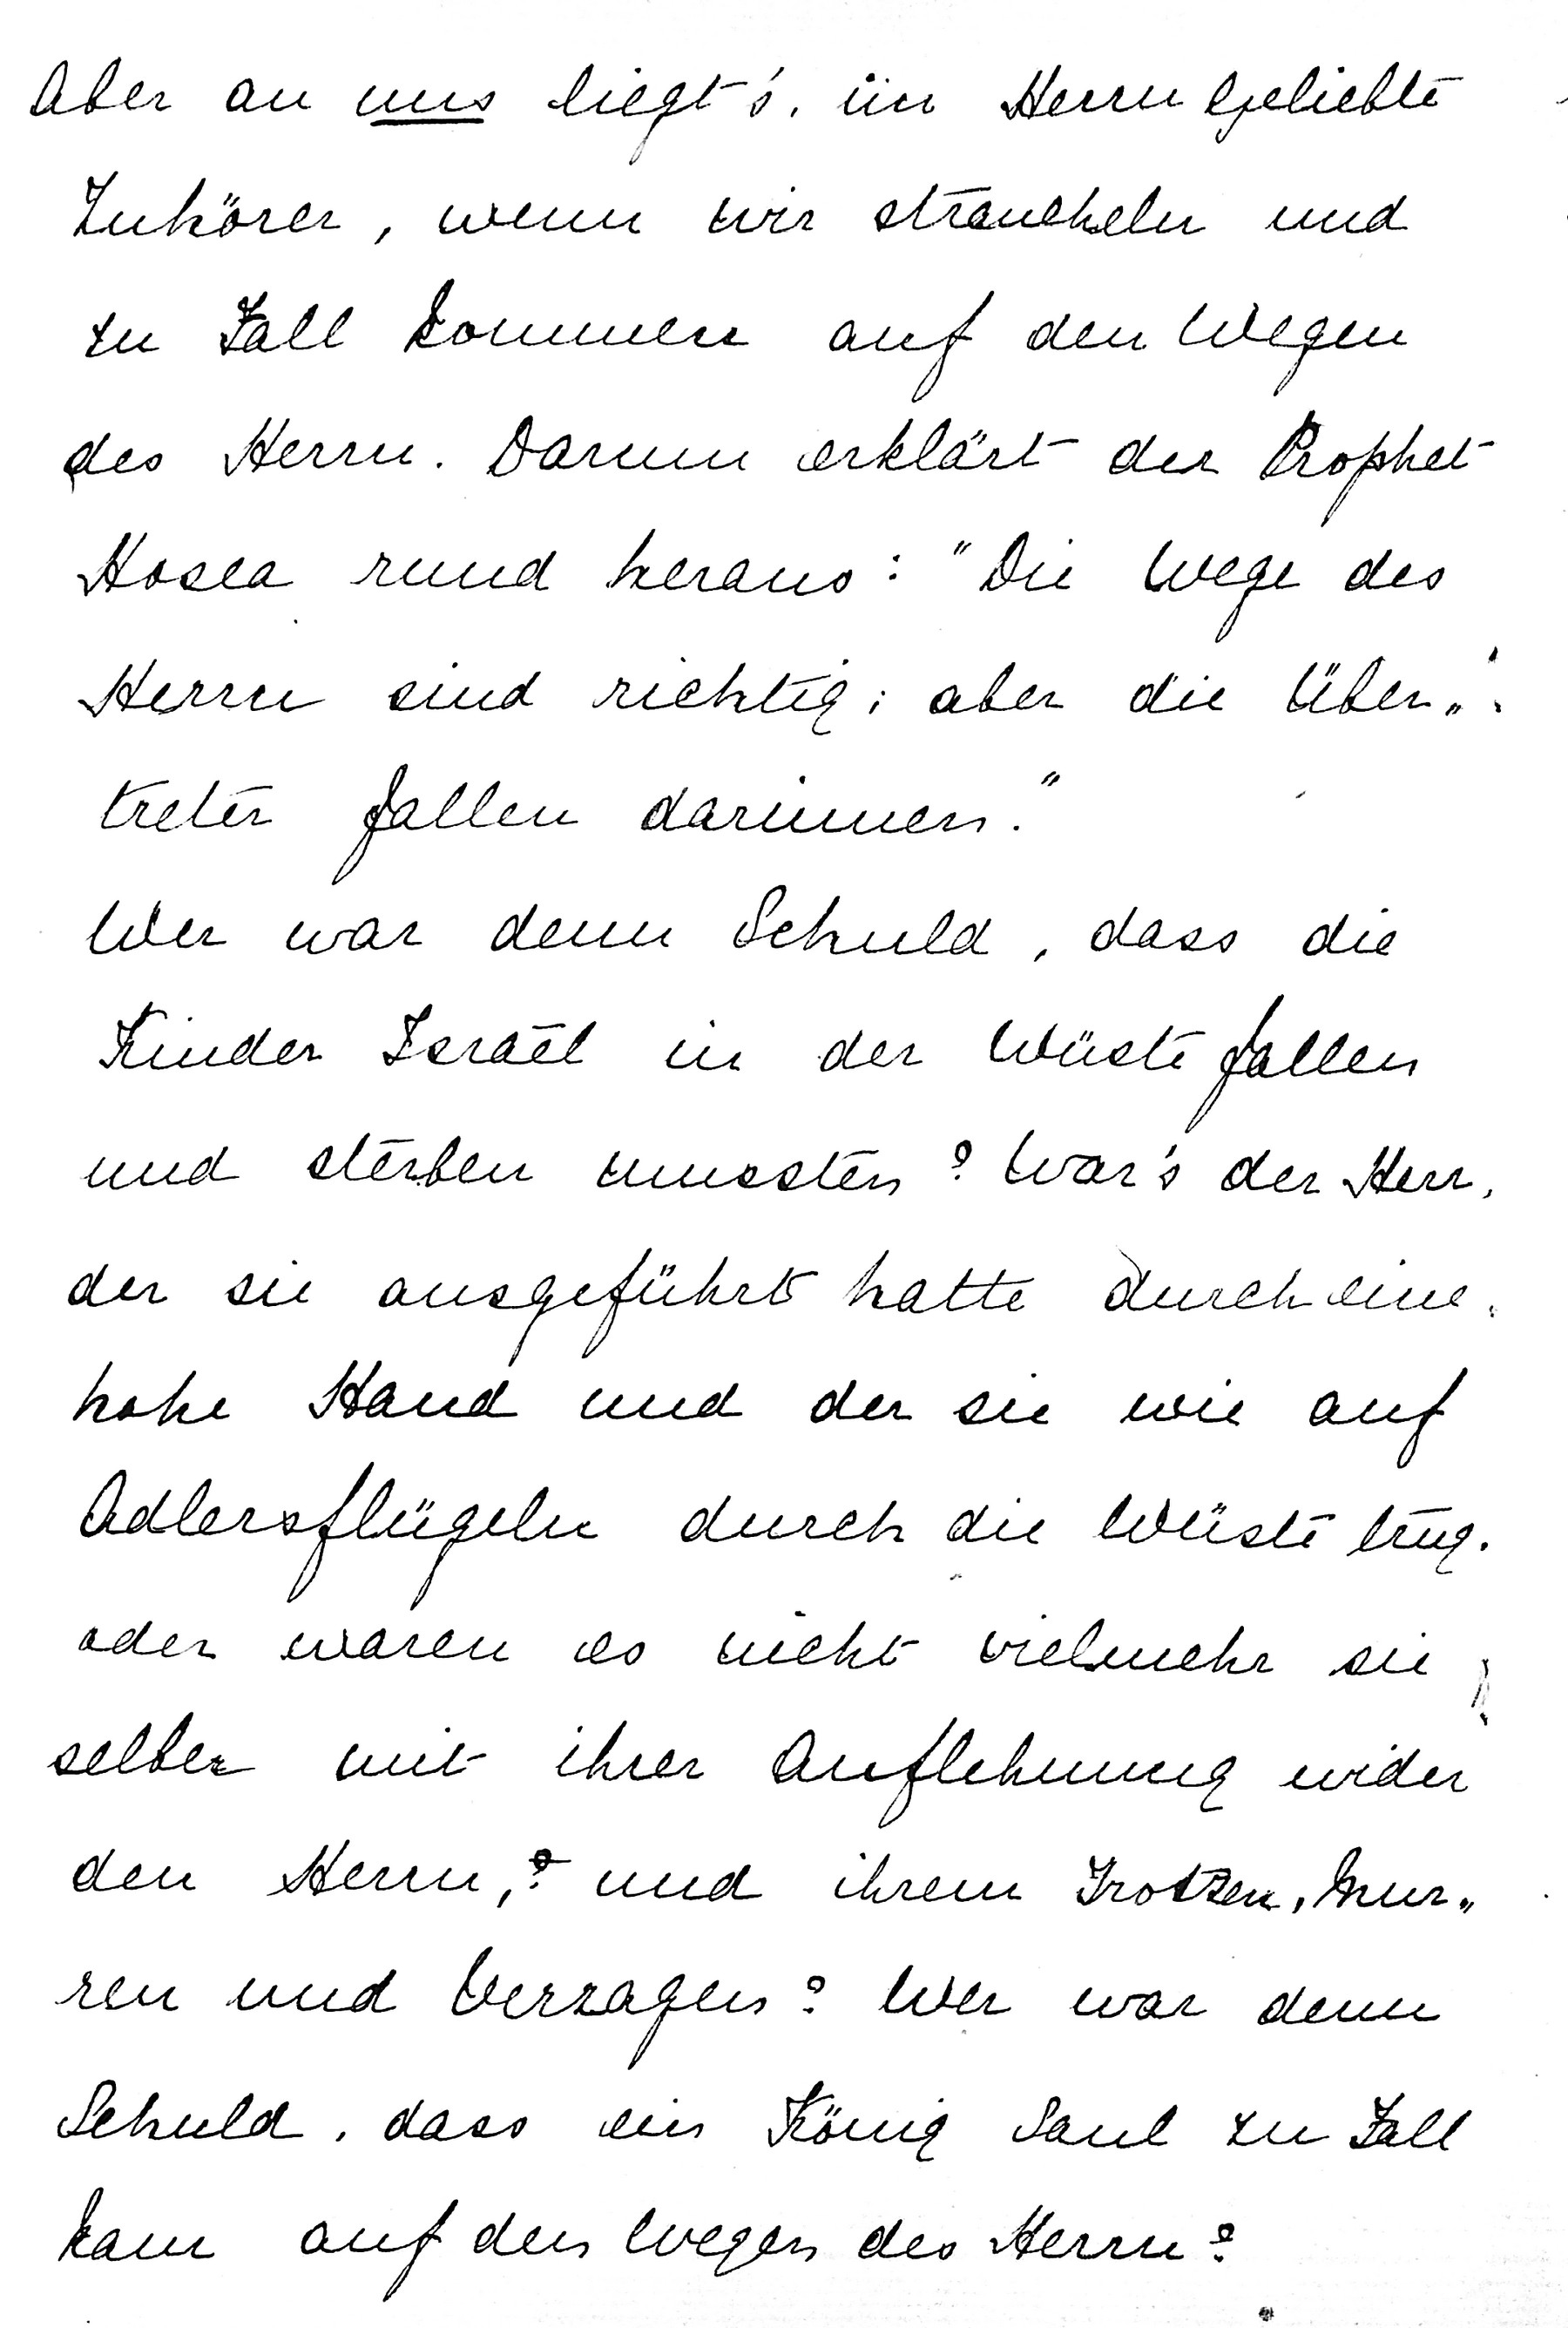 Aber an uns liegt's, im Herrn geliebte
Zuhörer, wenn wir straucheln und
zu Fall kommen auf den Wegen
des Herrn. Darum erklärt der Prophet
Hosea rund heraus: "Die Wege des
Herrn sind richtig; aber die Über„
treter fallen darinnen."
Wer war denn Schuld, dass die
Kinder Israël in der Wüste fallen
und sterben mussten? War's der Herr,
der sie ausgeführt hatte durch eine
hohe Hand und der sie wie auf
Adlersflügeln durch die Wüste trug.
oder waren es nicht vielmehr sie
selber mit ihrer Auflehnung wider
den Herrn, und ihrem Trotzen, Mur„
ren und Verzagen? Wer war denn
Schuld, dass ein König Saul zu Fall
kam auf den Wegen des Herrn?